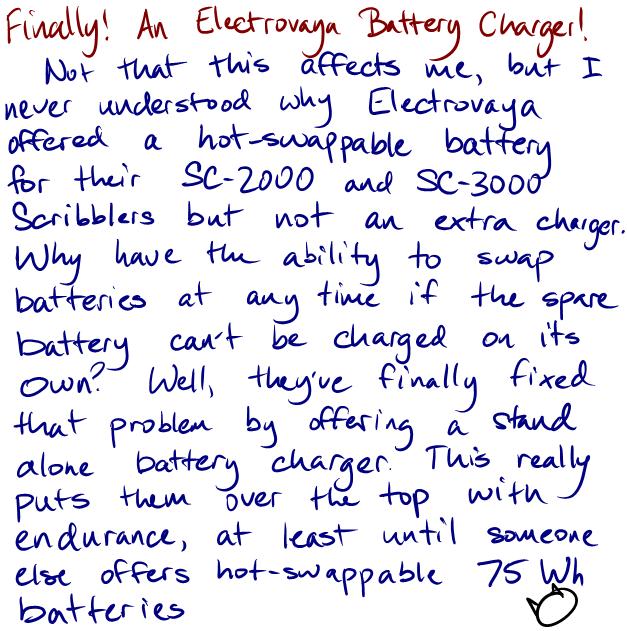 Finally! An Electrovaya Battery Charger!
Not that this affects me, but I
never understood why Electrovaya
offered a hot-swappable battery
for their SC-2000 and SC-3000
Scribblers but not an extra charger.
Why have the ability to swap
batteries at any time if the spare
battery can't be charged on its
own? Well, they've finally fixed
that problem by offering a stand
alone battery charger. This really
puts them over the top with
endurance, at least until someone
else offers hot-swappable 75 Wh
batteries